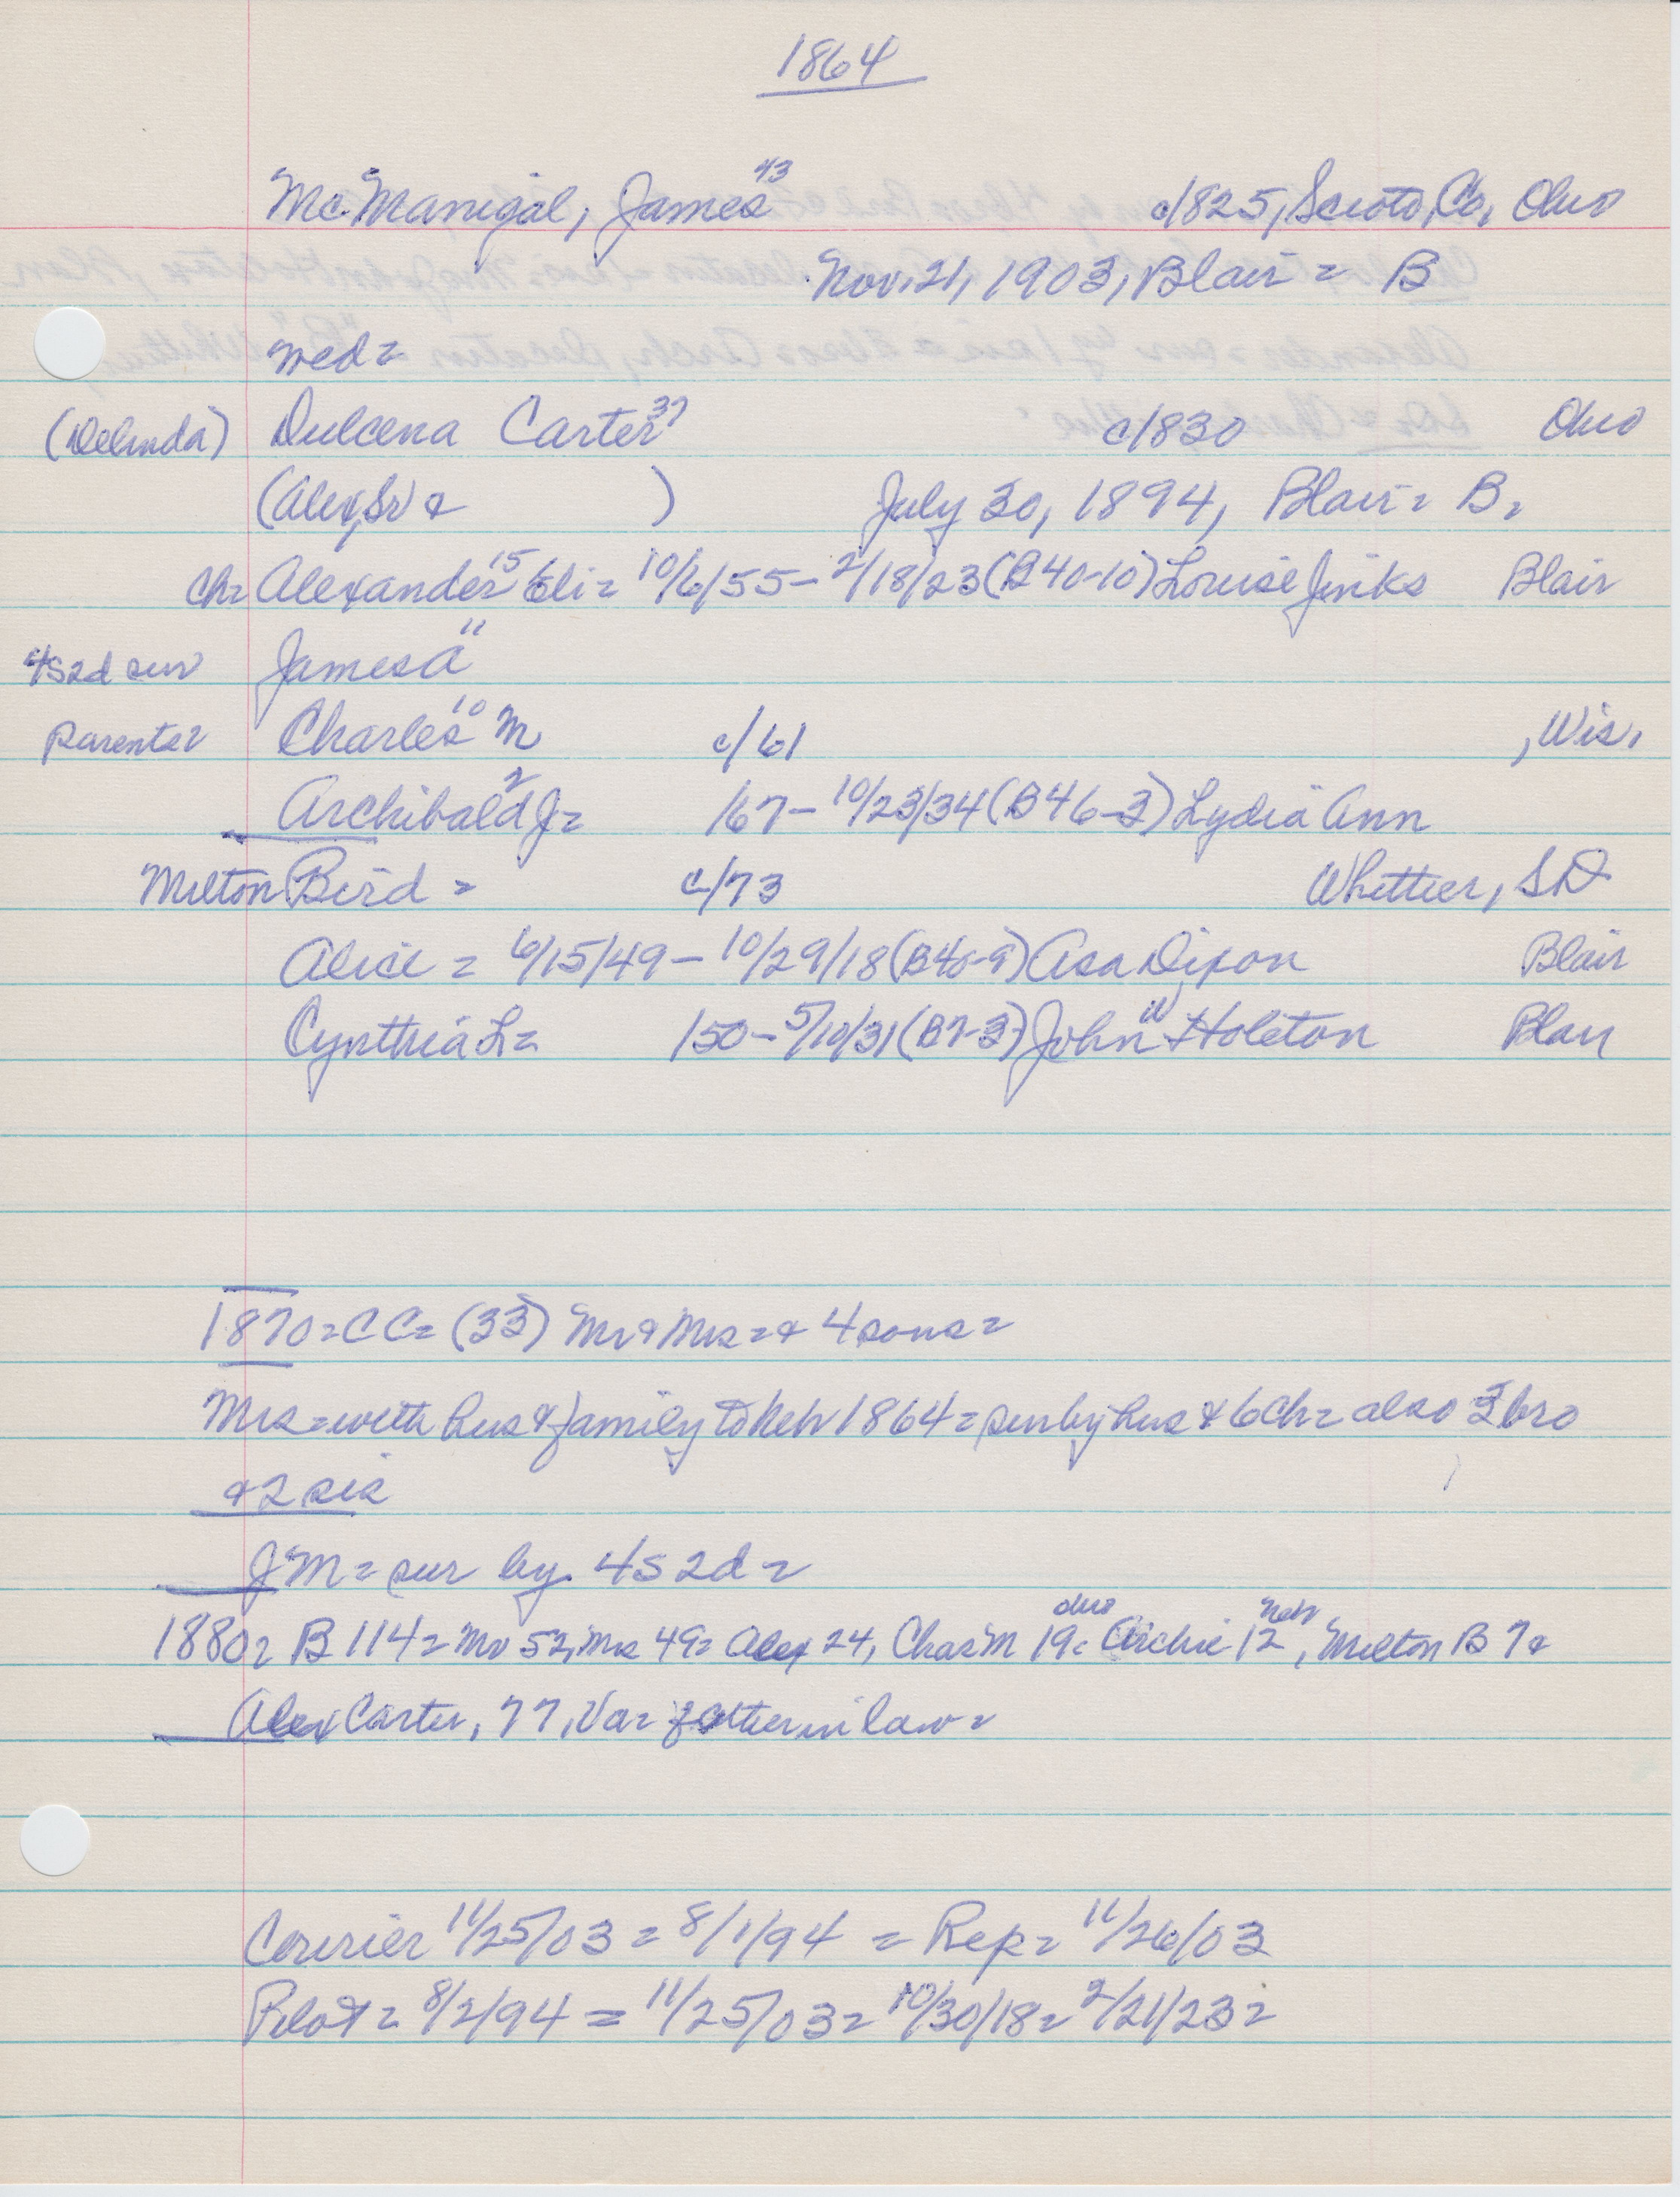 1864
McManigal, James 43 c/1825, Scioto, Co, Ohio
Nov. 21, 1903, Blair = B
wed =
(Delinda) Dulcena Carter 37 c/1830 Ohio
(Alex, Sr & ) July 30, 1894, Blair = B =
ch = Alexander 15 Eli = 10/6/55 - 2/18/23 (B40-10) Louise Jenks Blair
4s 2d sur James A 11
parents = Charles 10 M c/61 , Wis,
Archibald 2 J = /67 - 10/23/34 (B46-3) Lydia Ann
Milton Bird = c/73 Whittier, SD
Alice = 6/15/49 - 10/29/18 (B40-9) Asa Dixon Blair
Cynthia L = /50 - 5/10/31 (B7-3) John W Holeton Blair
1870 = CC = (33) Mr & Mrs = & 4 sons =
Mrs = with hus & family to Neb 1864 = sur by hus & 6 ch = also 3 bro
& 2 sis
JM = sur by 4s 2d =
1880 = B 114 = Mr 52, Mrs 49 = Alex 24, Chas M 19 = ohio Archie 12 neb, Milton B 7 &
Alex Carter, 77, Va = father in law =
Courier 11/25/03 = 8/1/94 = Rep = 11/26/03
Pilot = 8/2/94 = 11/25/03 = 10/30/18 = 2/21/23 =